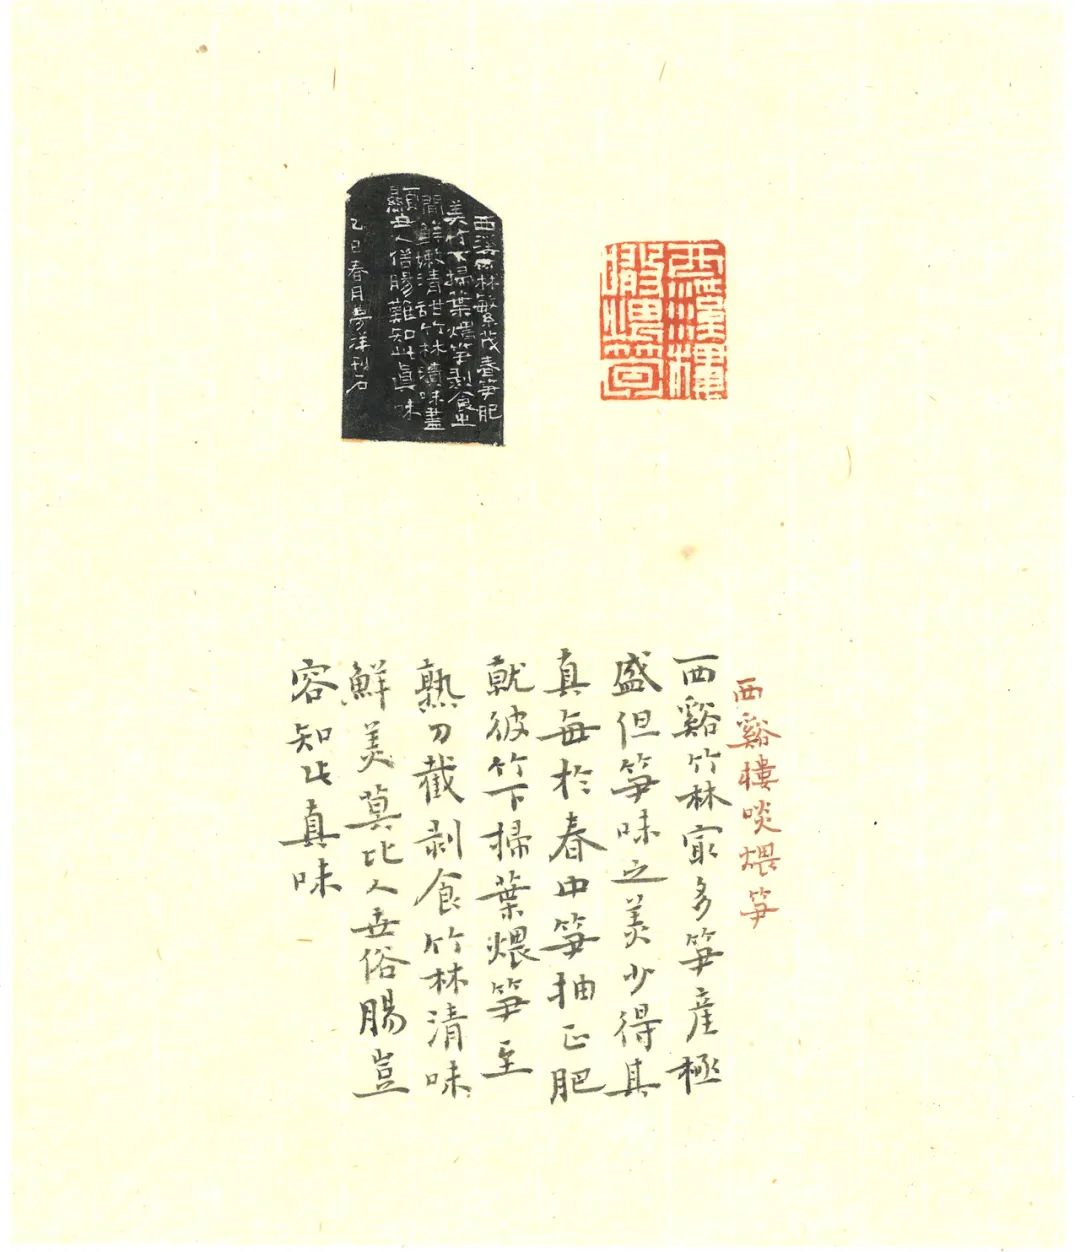 西溪樓
啖煨筍
西溪竹林繁茂春笋肥
美竹下掃葉煨笋剥食之
間鮮嫩清甜竹林清味盡
顯世人俗腸難知此真味
乙巳春月夢洋刊石
西谿樓啖煨笋
西谿竹林㝡多笋產極
盛但笋味之美少得其
真每於春中笋抽正肥
就彼竹下掃葉煨笋至
熟刀截剥食竹林清味
鮮美莫比人世俗腸豈
容知此真味